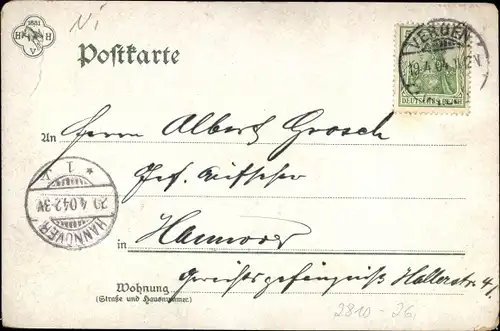 Ni
1881
H H
A
Postkarte
VERDEN
19.4.04.
DEUTSCHES REICH
An Herrn Albert Grosch
Gef. Aufseher
* 1 *
20.4.04.2-3N.
HANNOVER
in Hannover
Gerichtsgefängniß Hallerstr. 4,
Wohnung
(Straße und Hausnummer)
2810-26,